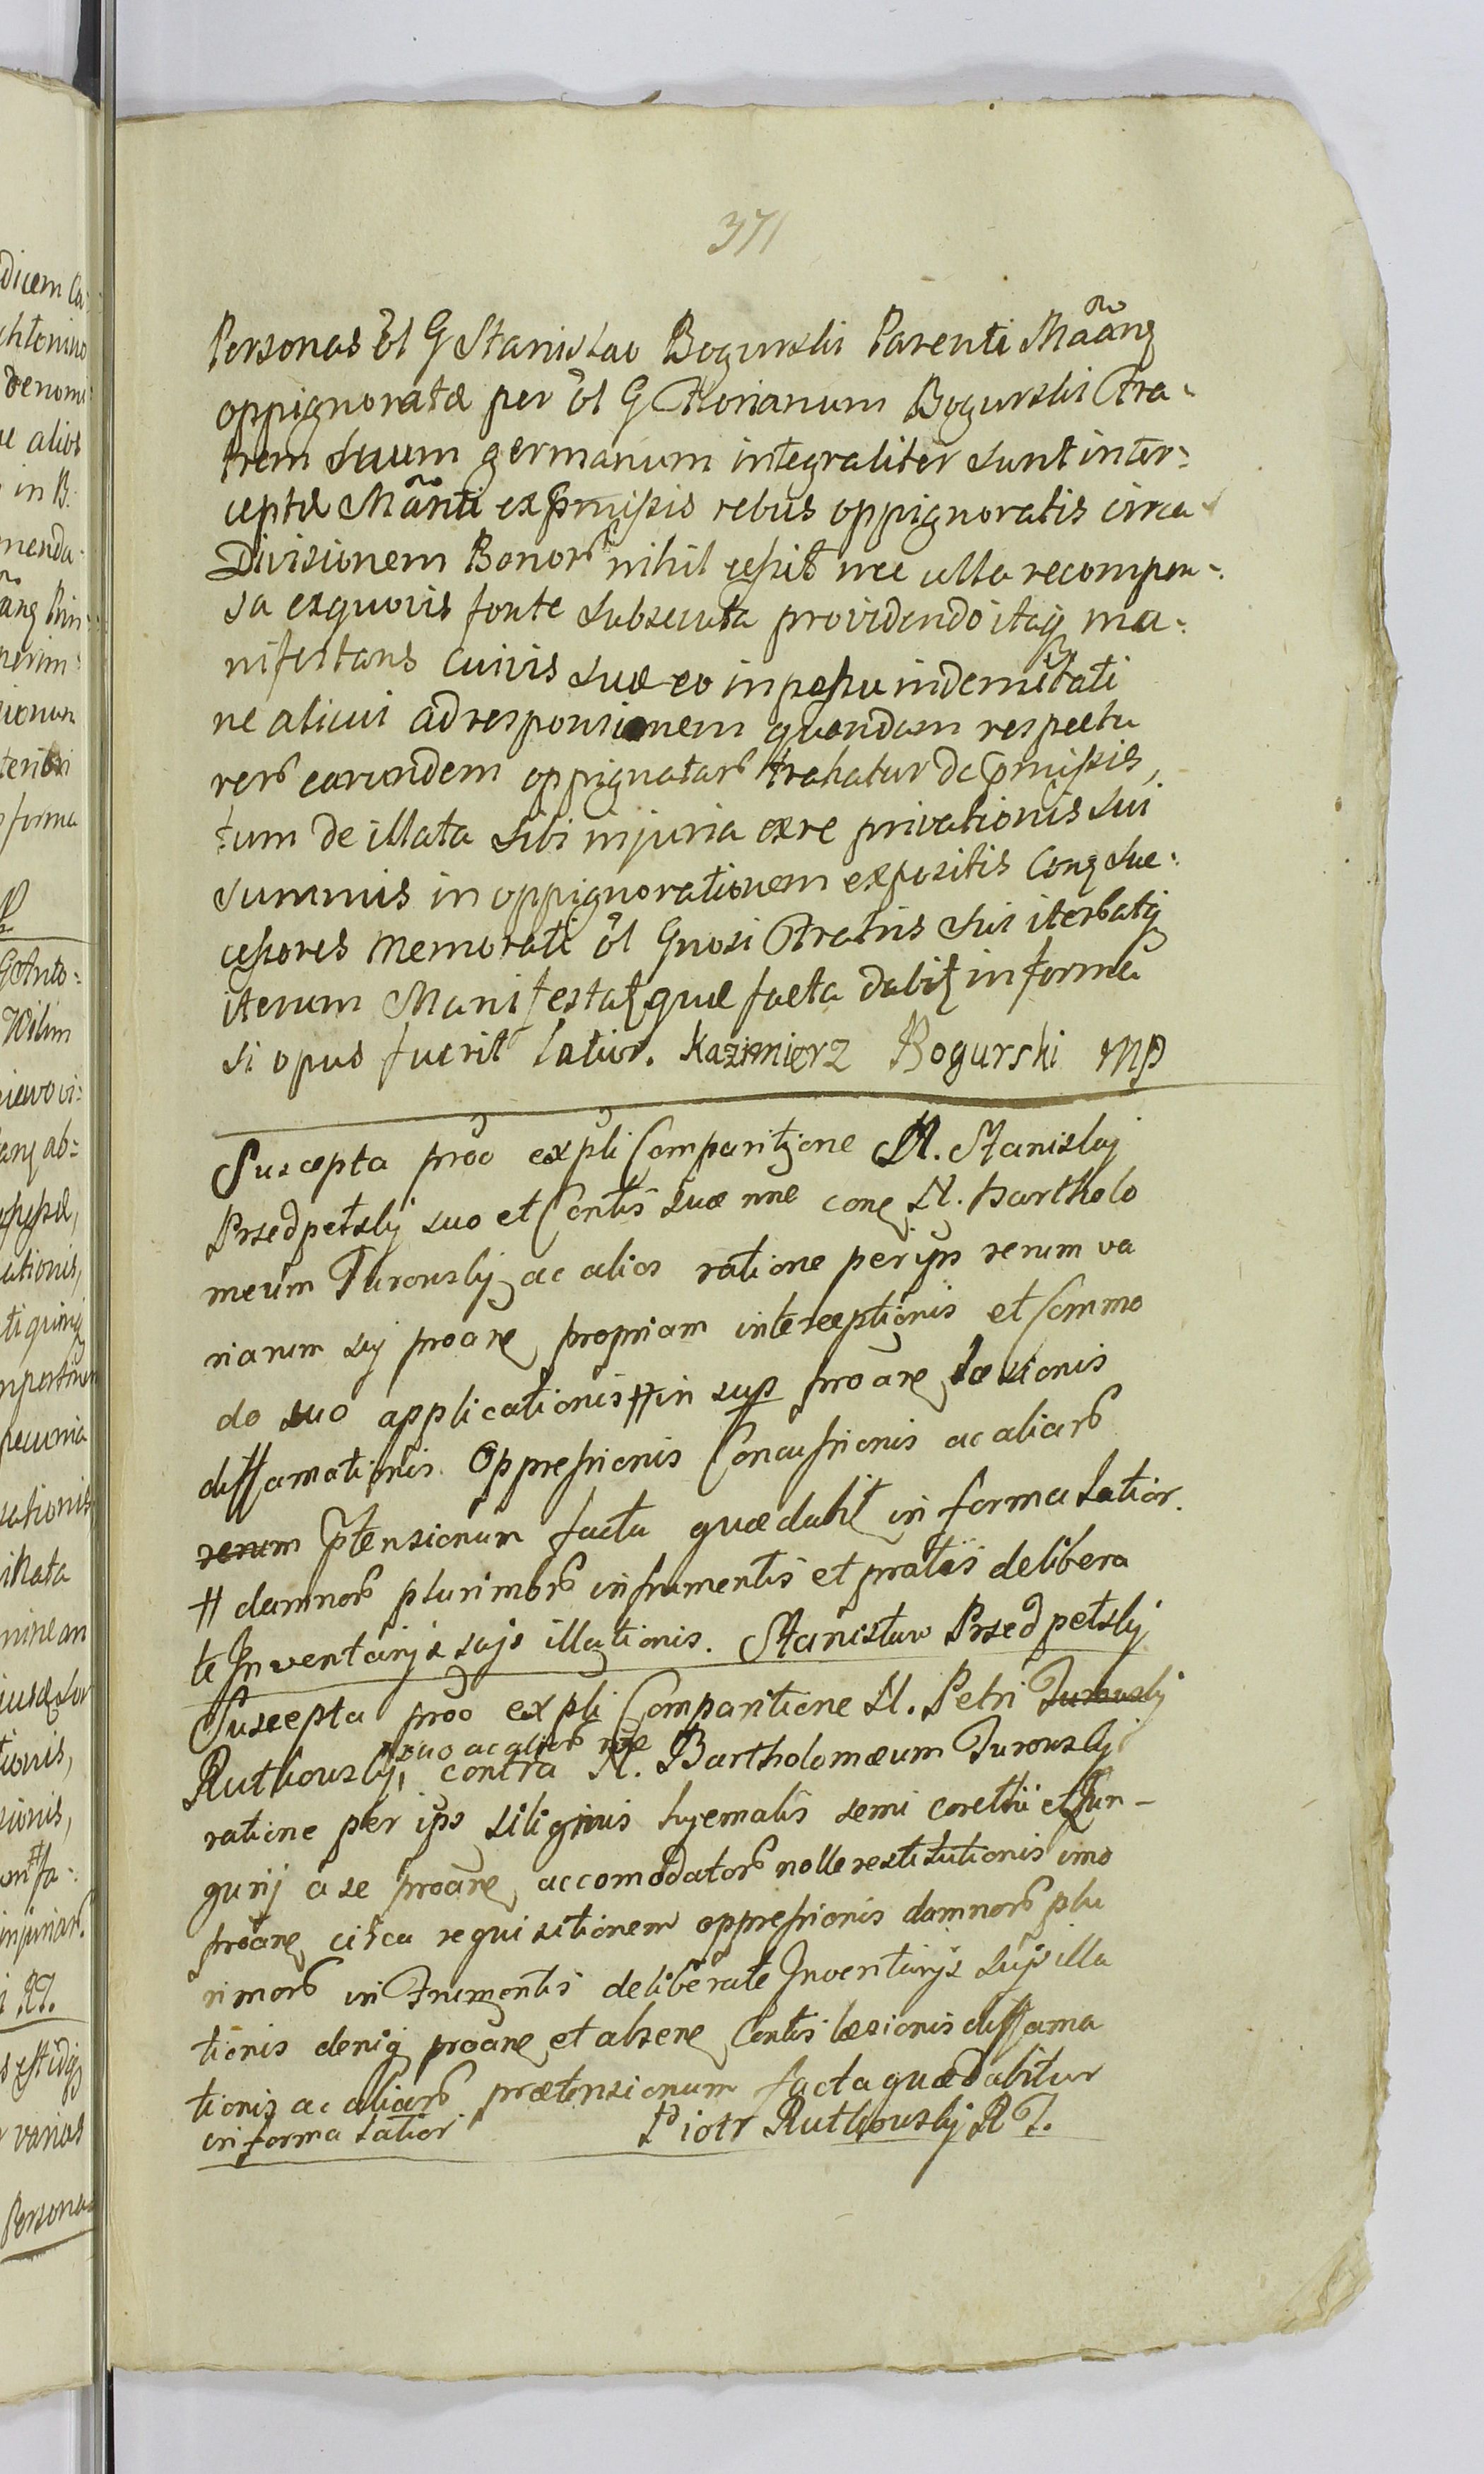 371
Personas ol G Stanislao Bogurski Parenti Mãang
oppignoratæ per ol G Florianum Bogurski Fra-
trem suum germanum integraliter sunt inter-
ceptæ Mãnti ex præmissis rebus oppignoratis circa
Divisionem Bonor nihil cessit nec ulla recompen-
sa exquovis fonte subsecuta providendo itaq ma-
nifestans cuivis suæ eo in passu indemnitati
ne alicui ad responsionem quandam respectu
rer earundem oppignatar trahatur de præmissis,
tum de illata sibi injuria ex re privationis sui
summis in oppignorationem expositis Cong suc-
cessores memorati ol Gnosi Fratris sui iterbatq
iterum Manifestat quæ facta dabit in forma
si opus fuerit latior. Kazimierz Bogurski mp
Suscepta proo expli Comparitione N. Stanislaj
Przedpełskj suo et Contis suæ nne cong N. Bartholo
meum Turouskj ac alios ratione per ips rerum va
riarum suj proare propriam interceptionis et Commo
do suo applicationis # in sup proare læsionis
diffamationis Oppressionis Concussionis ac aliar
rerum ptensionum facta quæ dabit in forma latior.
# damnor plurimor in frumentis et pratis delibera
te Inventarijs sujs illationis. Stanisław Przedpełskj
Suscepta proo expli Comparitione N. Petri Turouskj
suo ac alior nne
Rutkouskj, contra N. Bartholomæum Turouskj
ratione per ips siliginis hyemalis semi coretii et fur-
gurij a se proare accomodator nolle restitutionis imo
proare circa requisitionem oppressionis damnor plu
rimor in Frumentis deliberate Inventarijs sujs illa
tionis deniq proare et absene Contis læsionis diffama
tionis ac aliar prætensionum facta quæ dabitur
in forma latior Piotr Rutkouskj RT.